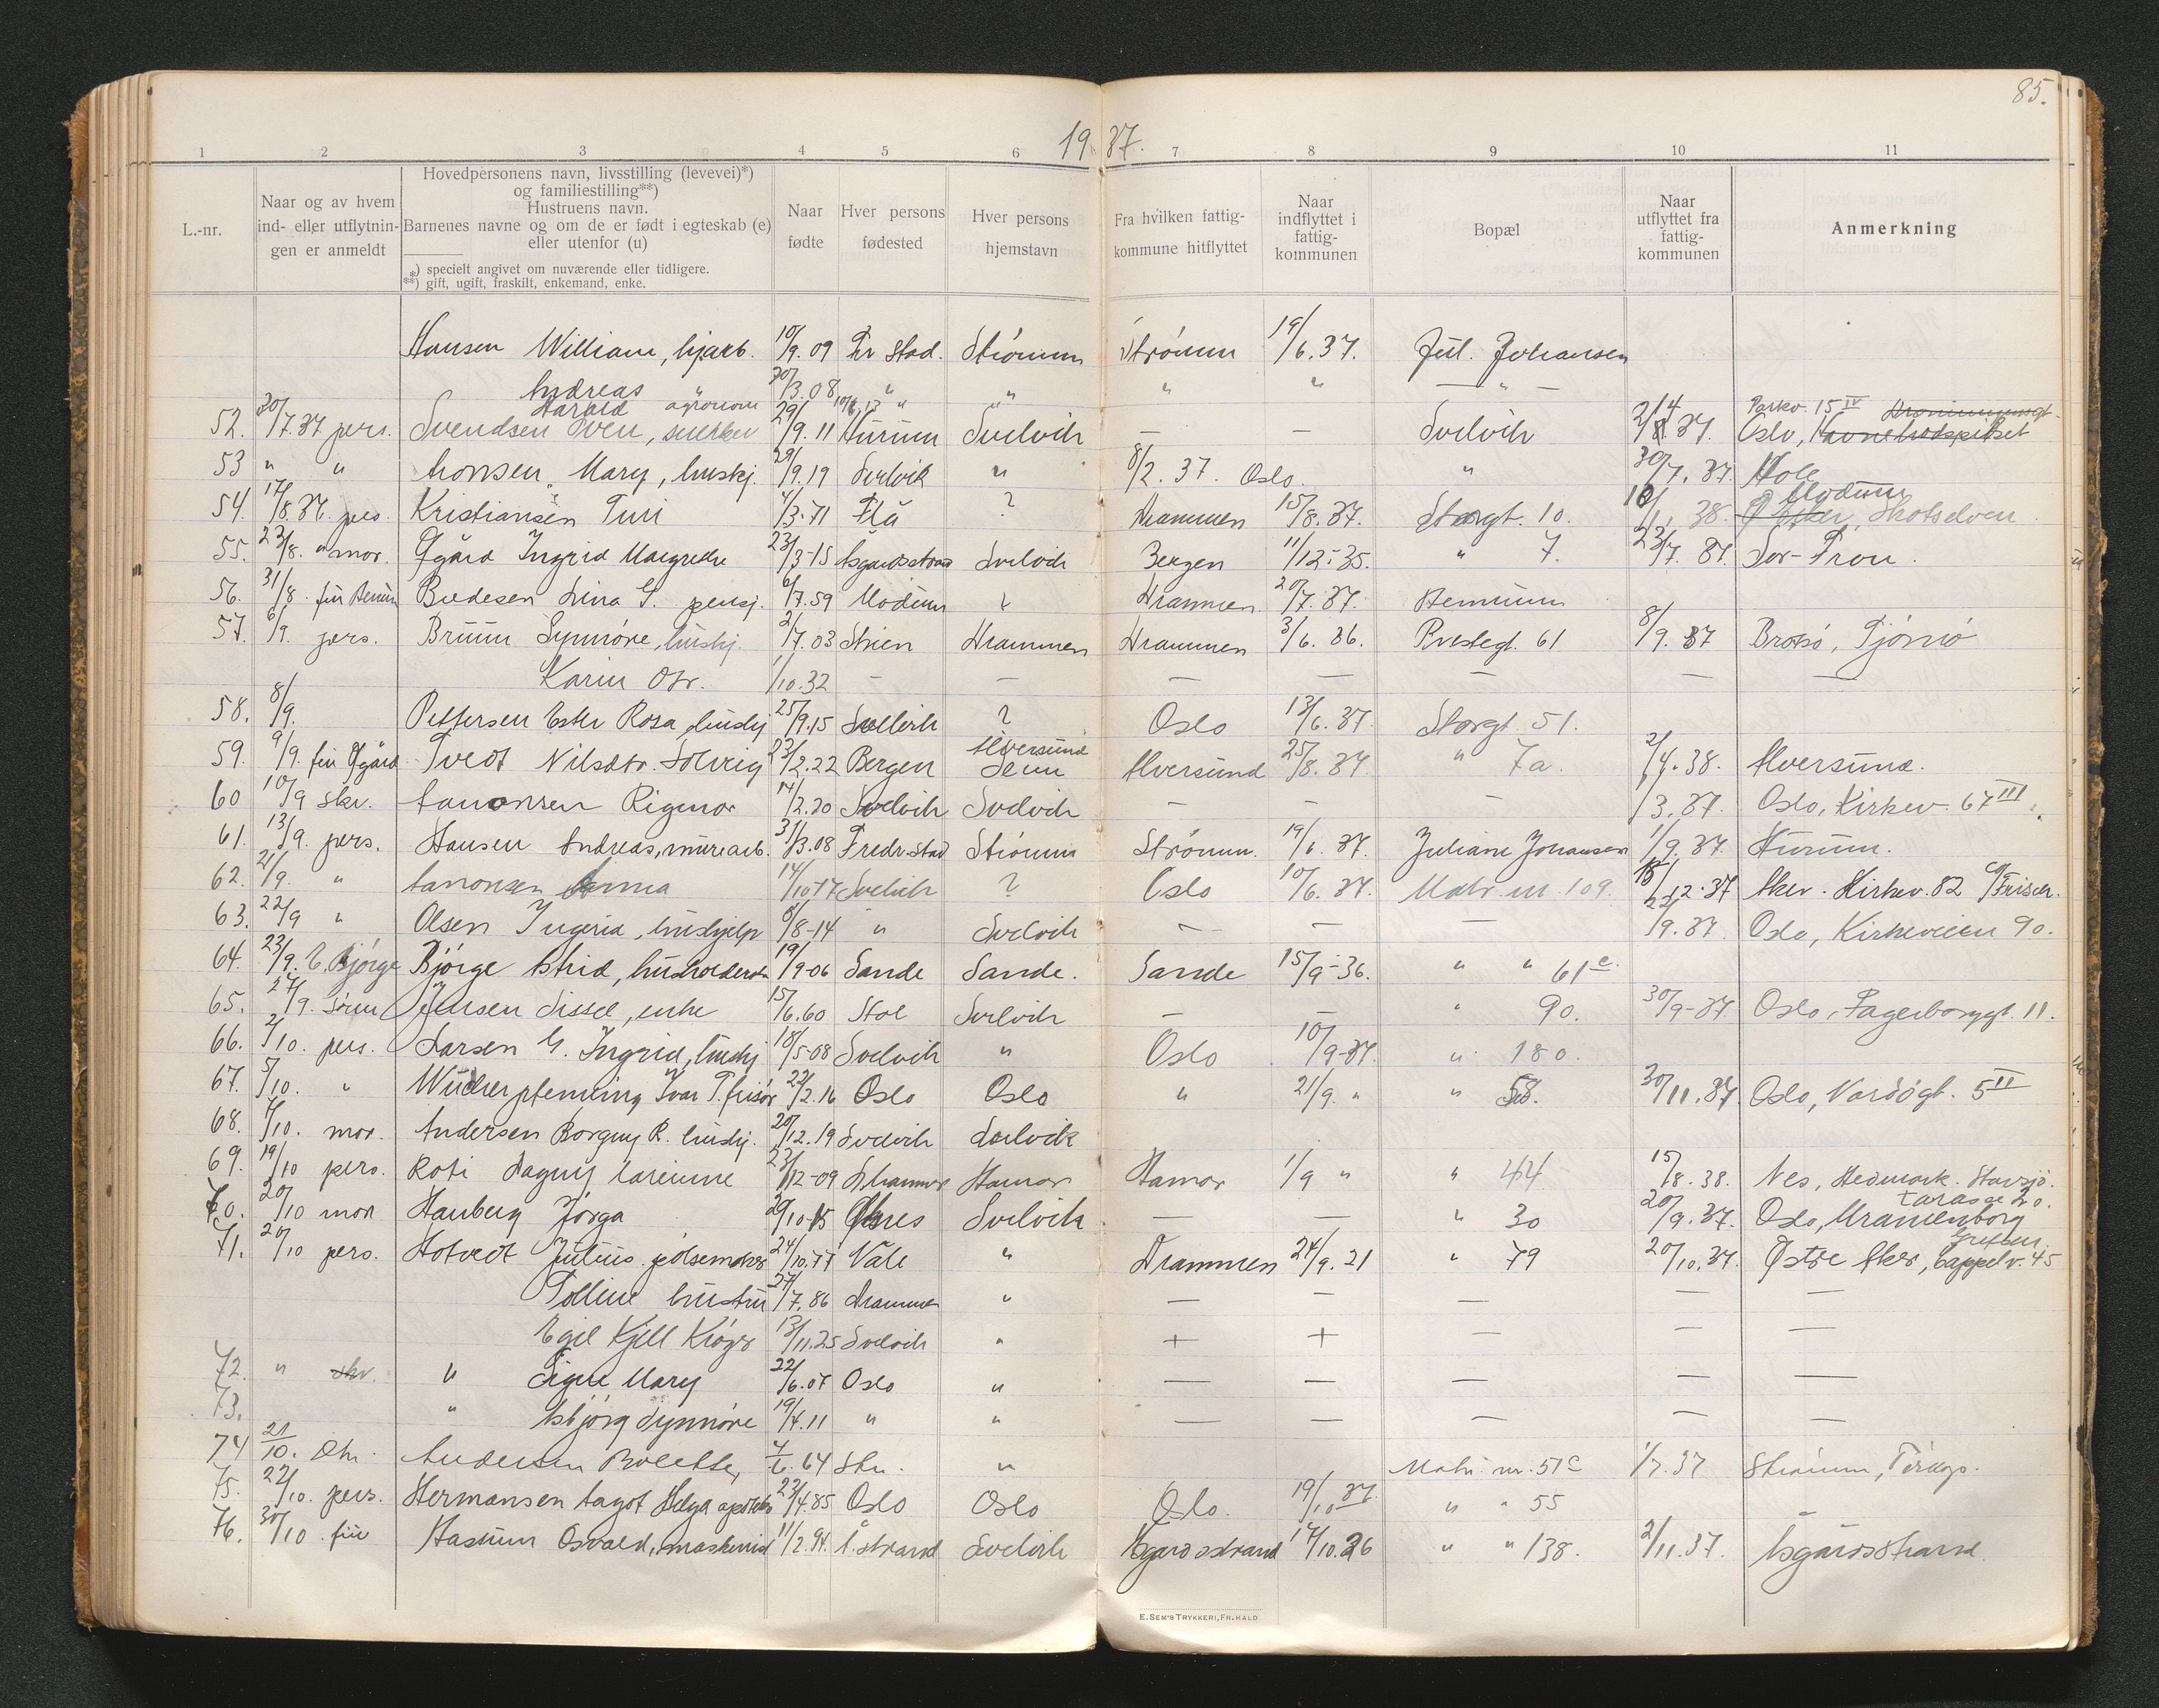 85.
19 37.
1 2 3 4 5 6 7 8 9 10 11
L.-nr.
Naar og av hvem
ind- eller utflytnin-
gen er anmeldt
Hovedpersonens navn, livsstilling (levevei)*)
og familiestilling**)
Hustruens navn.
Barnenes navne og om de er født i egteskab (e)
eller utenfor (u)
*) specielt angivet om nuværende eller tidligere.
**) gift, ugift, fraskilt, enkemand, enke.
Naar
fødte
Hver persons
fødested
Hver persons
hjemstavn
Fra hvilken fattig-
kommune hitflyttet
Naar
indflyttet i
fattig-
kommunen
Bopæl
Naar
utflyttet fra
fattig-
kommunen
Anmerkning
Hansen William, hjarb. 10/9.09 Fr stad. Strömm Strömm 19/6.37. Jul. Johansen
Andreas 30/3.08 " " " " — " —
Harald agronom 10/6 13 " Parkv. 15 IV
52. 30/7.37 pers. Svendsen Sven, snekker 29/9.11 Hurum Svelvik — — Svelvik 2/8.37. Oslo,
53 " " Aronsen, Mary, huskj. 29/9.19 Svelvik " 8/2.37. Oslo. " 30/7.37. Hole
54. 17/8.37. pers. Kristiansen Turi 4/3.71 Flå ? Drammen 15/8.37. Storgt. 10. 10/1.38. Modum, Skotselven
55. 23/8. " mor. Øgård Ingrid Margrethe 23/3-15 Åsgårdstrand Svelvik Bergen 11/12-35. " 7. 23/7.37. Sør-Fron.
56. 31/8. fru Bruun Bredesen Lina G. pensj. 6/7.59 Modum Drammen 20/7.37.
57. 6/9. pers. Bruun Synnöve, huskj. 2/7.03 Skien Drammen Drammen 3/6.36. Prestegt. 61 8/9.37 Brotsö, Tjömö
Karin Dtr. 1/10.32 — — — — — — —
58. 8/9. Pettersen Ester Rosa, huskj 25/9.15 Svelvik ? Oslo 13/6.37. Storgt. 51.
59. 9/9. fru Øgård Tvedt Nilsdtr. Solveig 23/2.22 Bergen Alversund Alversund 25/8.37. " 7a. 2/4.38. Alversund.
60 10/9 skr. Aanonsen Rigmor 14/2.20 Svelvik Svelvik — — — 1/3.37. Oslo, Kirkev. 67 III
61. 13/9. pers. Hansen Andreas, murearb. 31/3.08 Fredr.stad Strömm Strömm. 19/6.37. Juliane Johansen 1/9.37. Hurum.
62. 21/9. " Aanonsen Anna 14/10-17 Svelvik ? Oslo 10/6.37. Matr. nr. 109. 18/12.37 Aker. Kirkev. 82 c/o Frisch.
63. 22/9 " Olsen Ingrid, hushjelp 8/8-14 " Svelvik — — — 22/9.37. Oslo, Kirkeveien 90.
64. 23/9. E. Bjørge Bjørge Astrid, husholderske 19/9-06 Sande Sande. Sande 15/9-36. " " 61c.
65. 27/9. Jensen Sissel, enke 15/6.60 Svelvik — — " 90. 30/9-37 Oslo, Fagerborggt. 11.
66. 2/10. pers. Larsen G. Ingrid, huskj 18/5-08 Svelvik " Oslo 10/9-37. " 180.
67. 5/10. " Wucherpfenning Ivar T. frisör 22/2.16 Oslo Oslo " 21/9. " " 58. 30/11.37. Oslo, Vardögt. 5 II
68. 7/10. mor. Andersen Borgny R. huskj. 20/12.19 Svelvik Svelvik
69. 19/10 pers. Roti Dagny 23/12-09 Hamar Hamar 1/9 " " 44 15/8.38. Nes, Hedmark. Stavsjö.
70. 20/10 mor Hanberg Jörga 29/10-15 Svelvik — — " 30 20/9.37. Oslo, Uranienborg terasse 20.
71. 20/10 pers. Hotvedt Julius pølsemaker 24/10.77 Våle " Drammen 24/9.21 " 79 20/10.37. Østre Aker, Cappelv. 45 Grefsen.
Polline hustru 27/7.86 Drammen " — — — — —
Egil Kjell 13/11.25 Svelvik " + + — — —
72. " skr. " Signe Mary 22/6.07 Oslo " — — — — —
73. " Asbjörg Synnöve 19/4.11 " " — — — — —
74 21/10. Andersen Bolette, 4/6.64 Str. " Matr. nr. 51c 1/7.37 Strömm,
75. 22/10. pers. Hermansen Aagot Helga 23/4.85 Oslo Oslo Oslo. 19/10 37. " " 55
76. 30/10. fru Hasum Osvald, maskinist 11/2.94. Å.strand Svelvik Åsgårdstrand 14/10.26 " " 138. 2/11.37. Åsgårdstrand
E. SEM'S TRYKKERI, FR.HALD